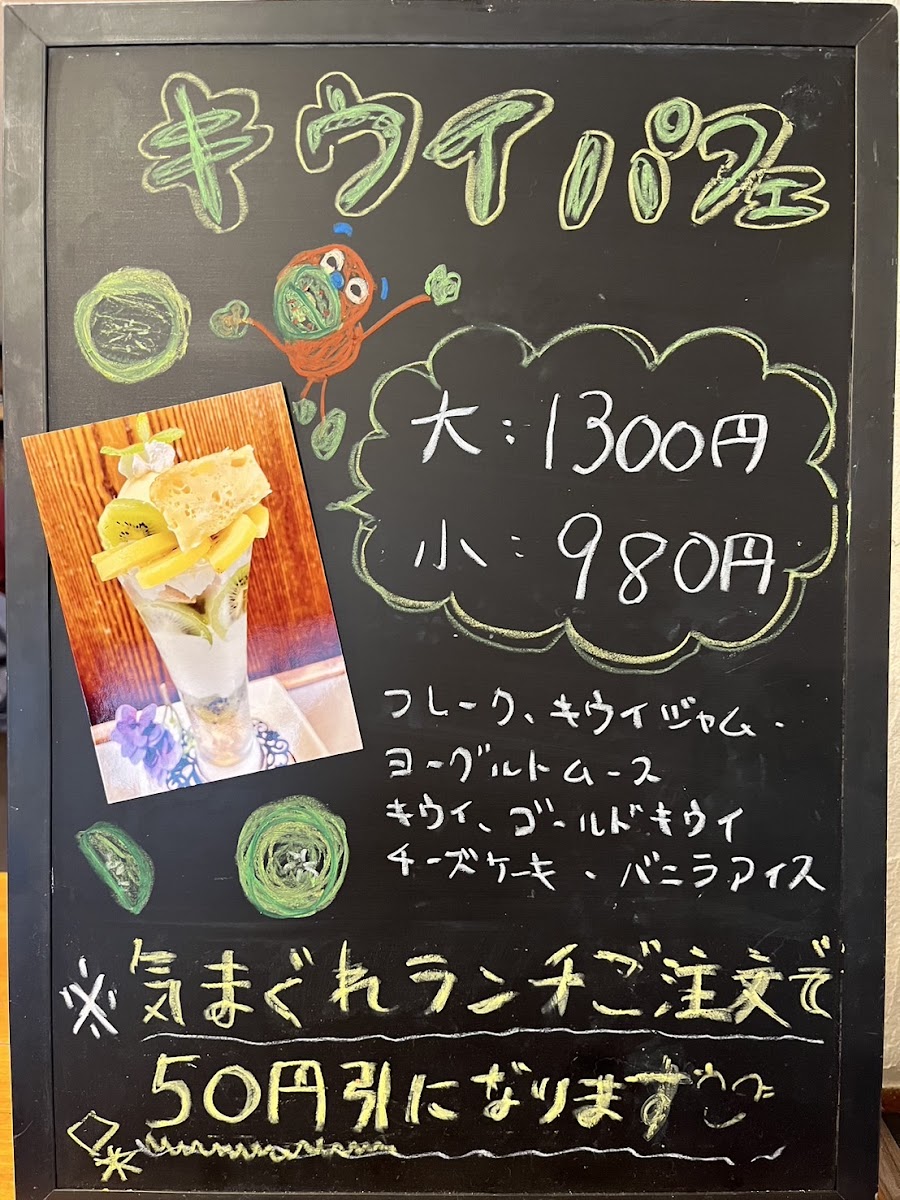 キウイパフェ
大:1300円
小:980円
フレーク、キウイジャム、
ヨーグルトムース
キウイ、ゴールドキウイ
チーズケーキ、バニラアイス
※気まぐれランチご注文で
50円引になります